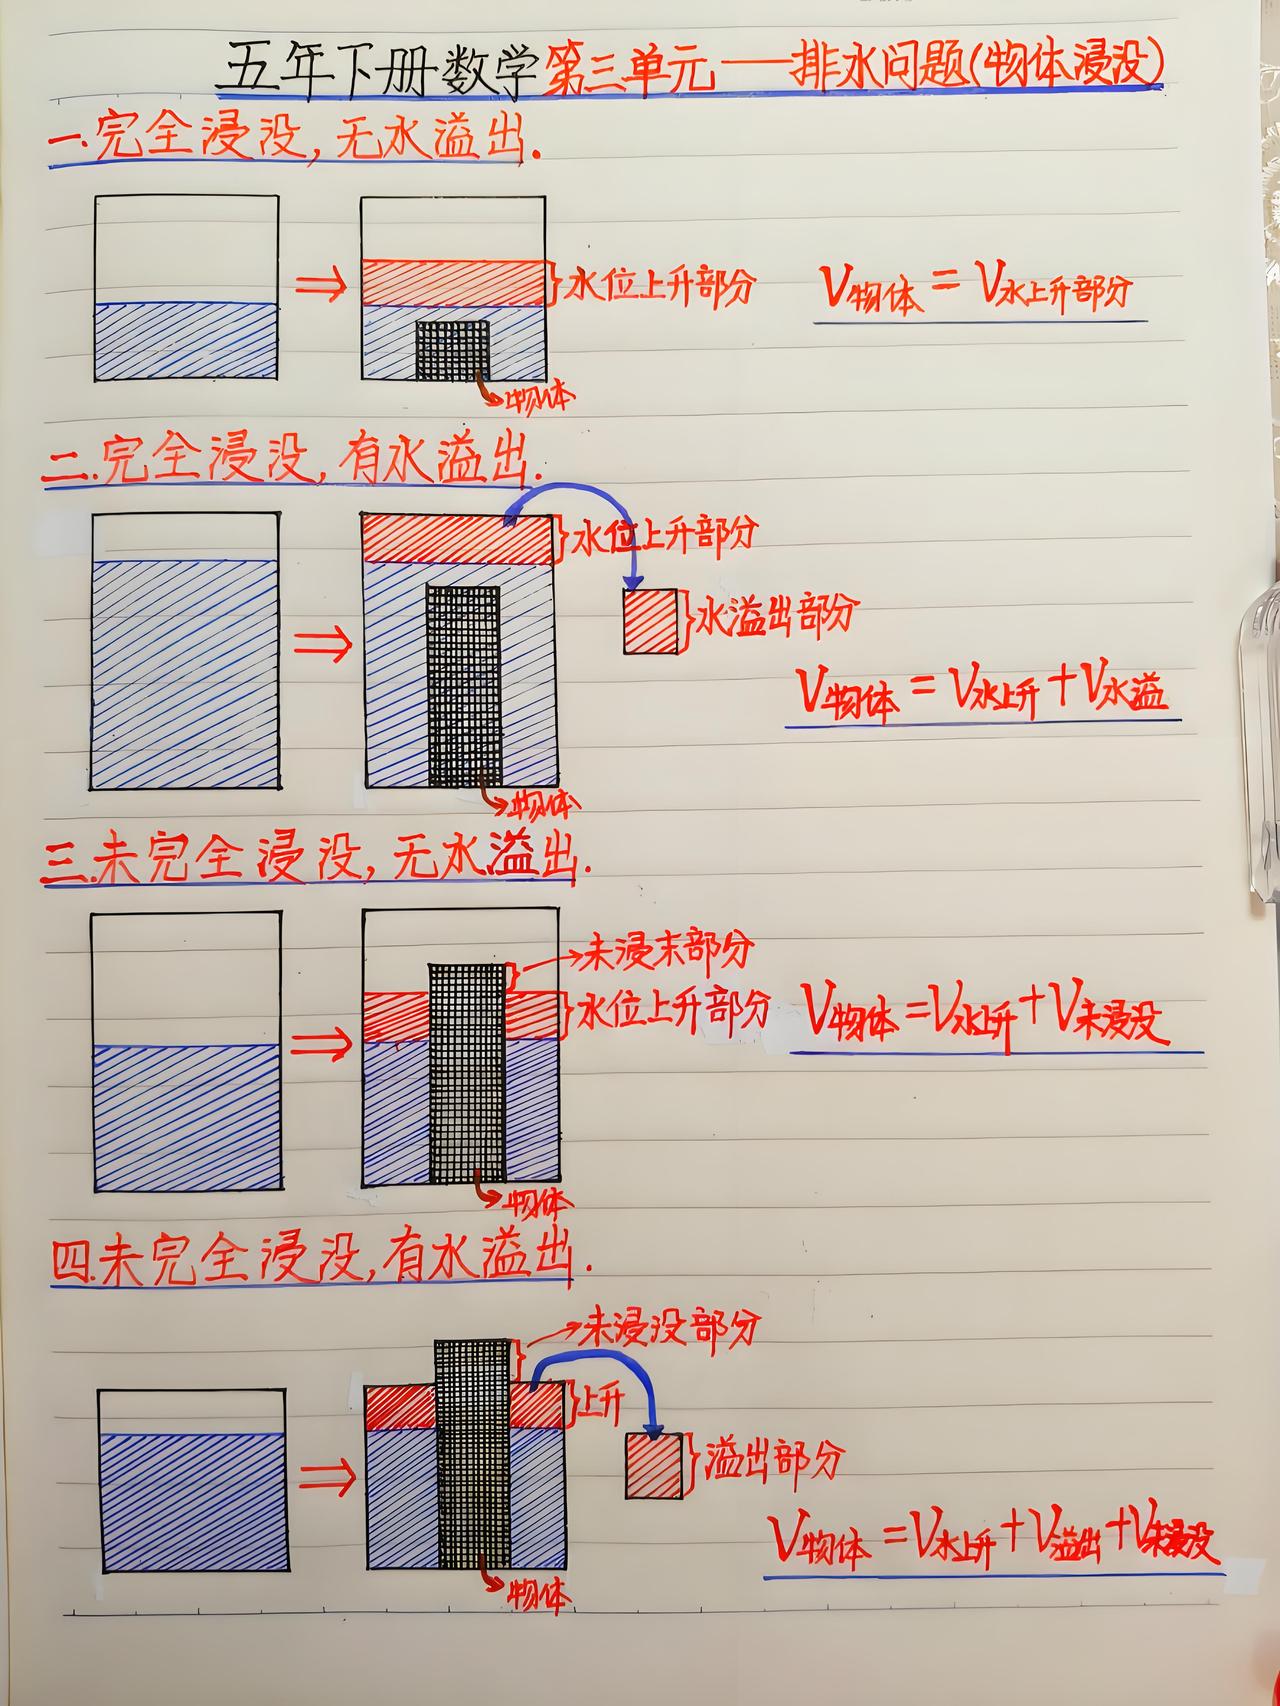 五年下册数学第三单元——排水问题(物体浸没)
一.完全浸没,无水溢出.
水位上升部分
V物体=V水上升部分
物体
二.完全浸没,有水溢出.
水位上升部分
水溢出部分
V物体=V水上升+V水溢
物体
三.未完全浸没,无水溢出.
未浸末部分
水位上升部分
V物体=V水上升+V未浸没
物体
四.未完全浸没,有水溢出.
未浸没部分
上升
溢出部分
V物体=V水上升+V溢出+V未浸没
物体